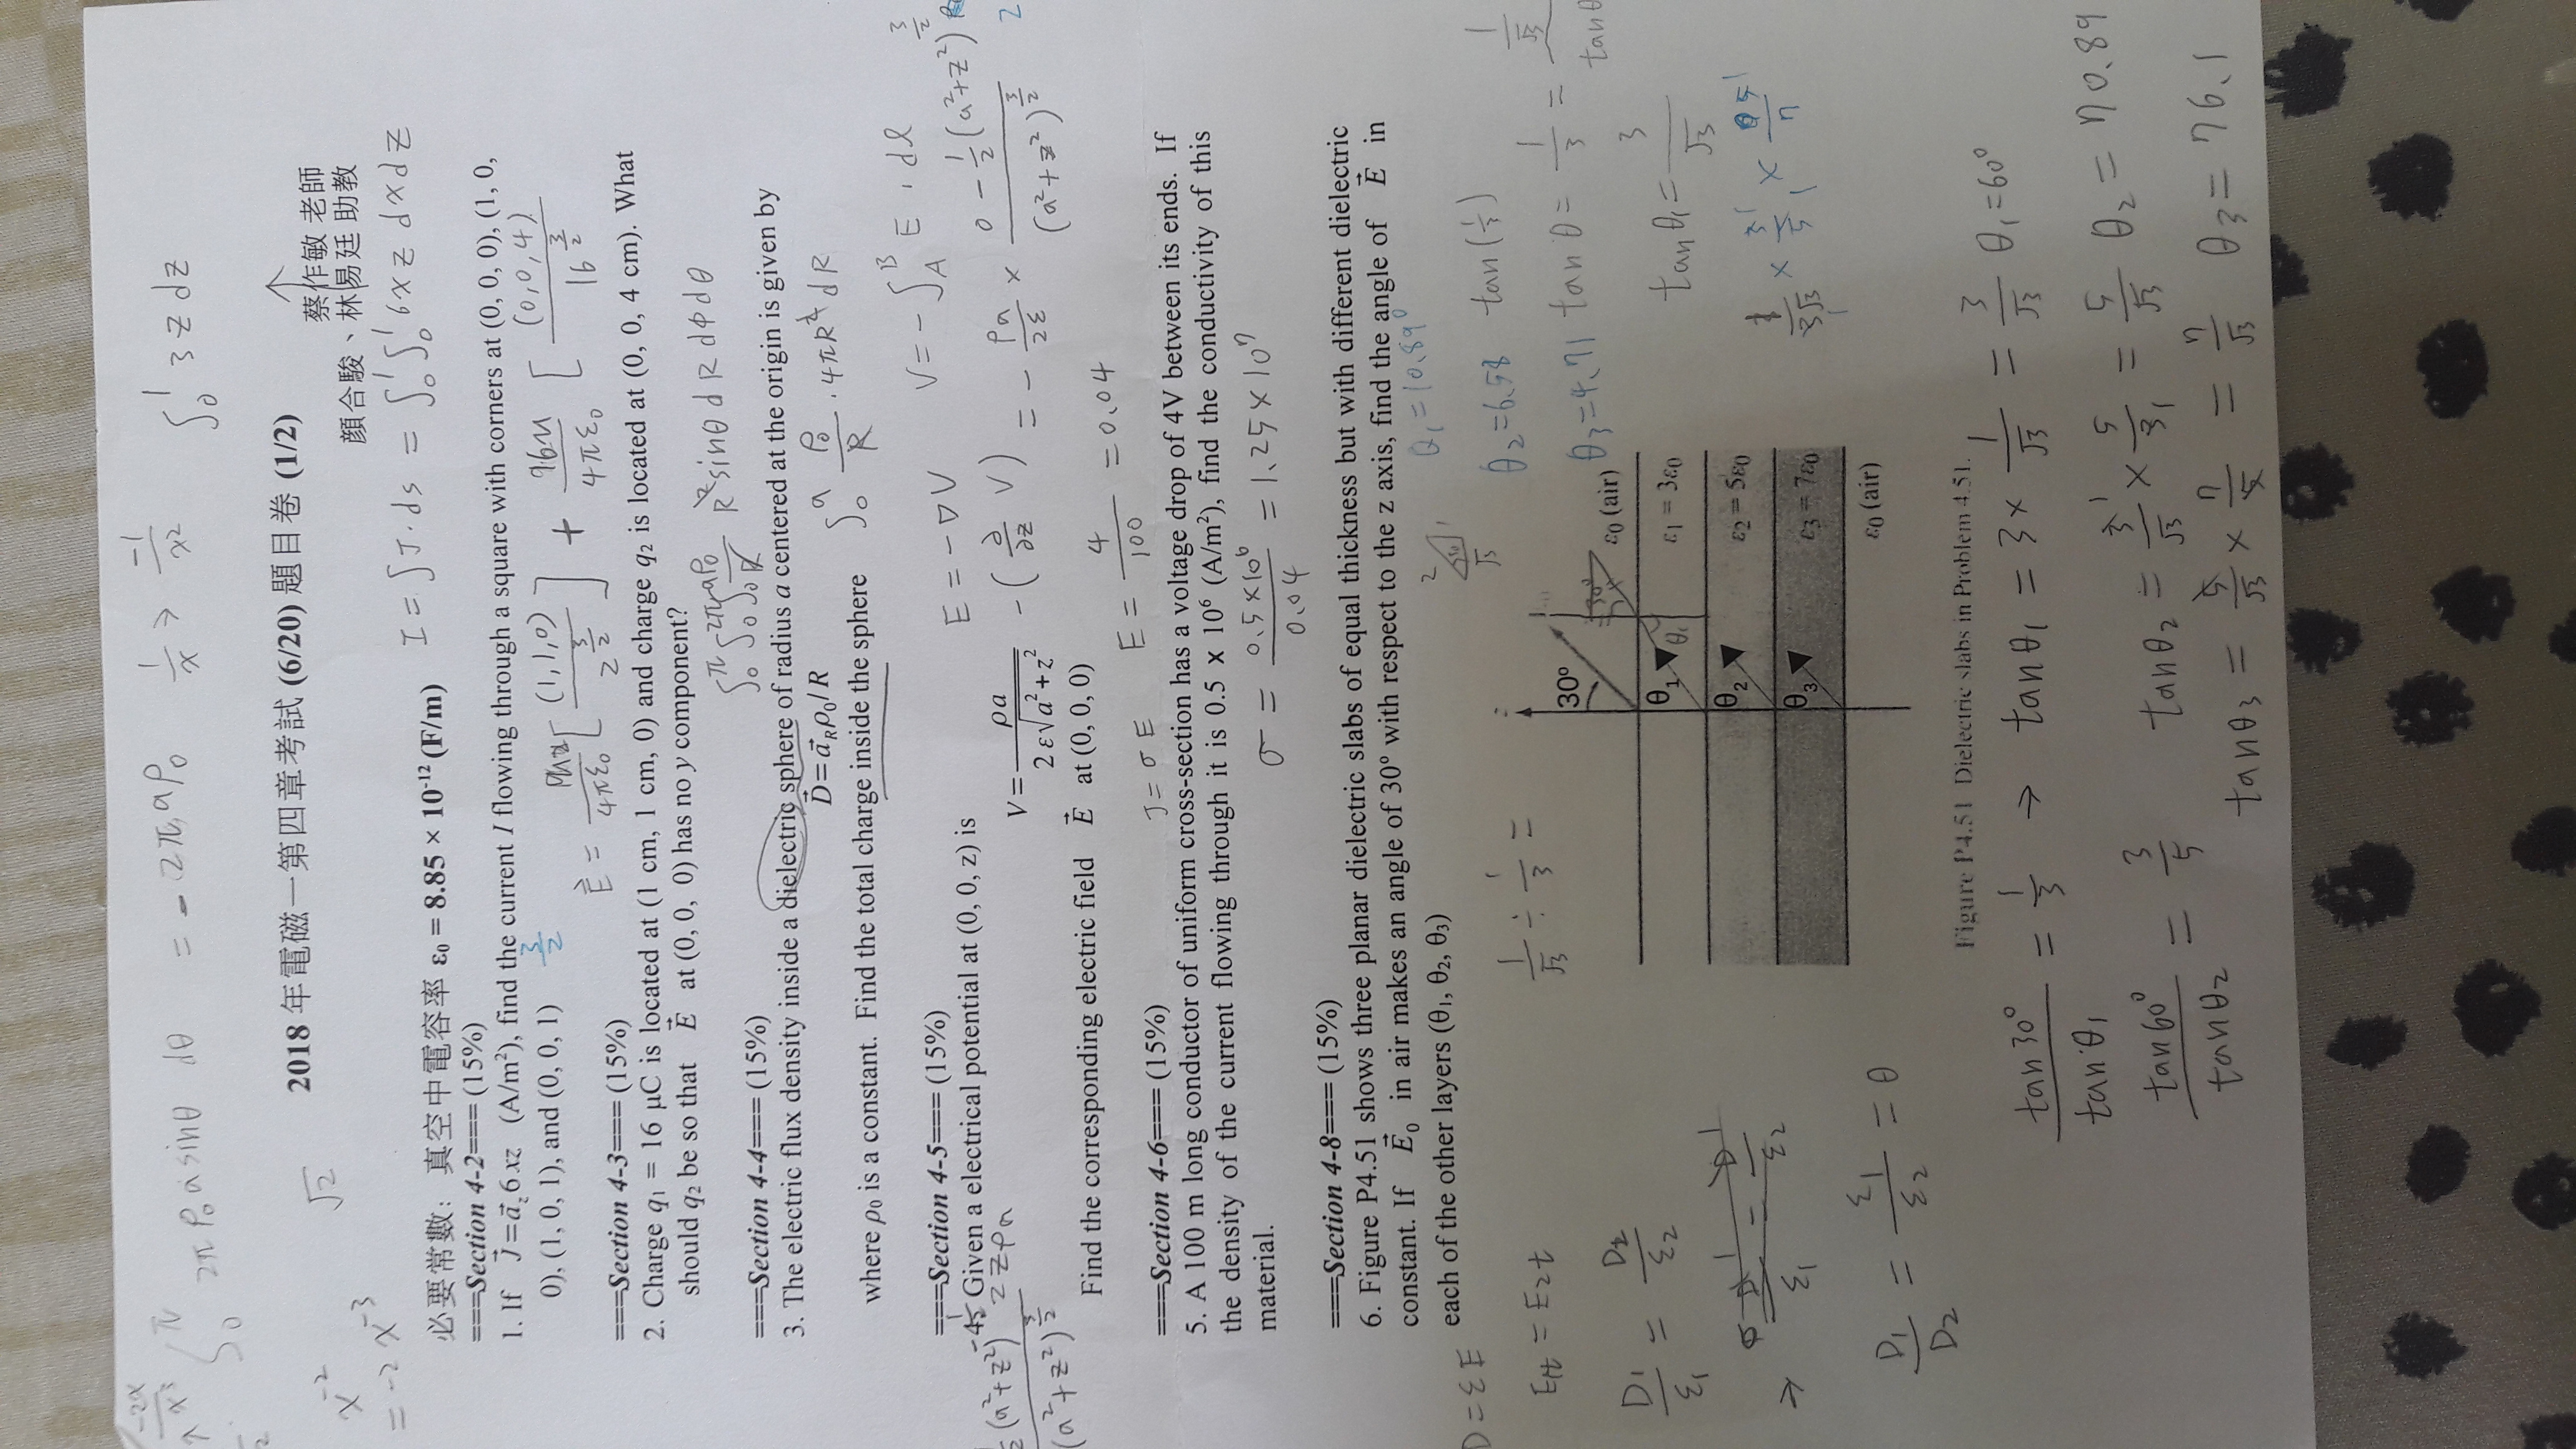 ∫₀^π 2π ρ₀ a sinθ dθ = -2π aρ₀
1/x > -1/x²
∫₀¹ 3z dz
2018 年電磁一第四章考試 (6/20) 題目卷 (1/2)
√2
蔡作敏 老師
顏合駿、林易廷 助教
x⁻²
= -2x⁻³
I = ∫J·ds = ∫₀¹∫₀¹ 6xz dxdz
必要常數: 真空中電容率 ε₀ = 8.85 × 10⁻¹² (F/m)
===Section 4-2=== (15%)
1. If J⃗=a⃗_z 6xz (A/m²), find the current I flowing through a square with corners at (0, 0, 0), (1, 0,
0), (1, 0, 1), and (0, 0, 1) 3/2
===Section 4-3=== (15%)
2. Charge q₁ = 16 μC is located at (1 cm, 1 cm, 0) and charge q₂ is located at (0, 0, 4 cm). What
should q₂ be so that E⃗ at (0, 0, 0) has no y component?
===Section 4-4=== (15%)
3. The electric flux density inside a dielectric sphere of radius a centered at the origin is given by
D⃗=a⃗_R ρ₀/R
where ρ₀ is a constant. Find the total charge inside the sphere
∫₀^a ρ₀/R · 4πR² dR
===Section 4-5=== (15%)
E = -∇V
V = -∫_A^B E · dl
4. Given a electrical potential at (0, 0, z) is
V = ρa / 2ε√(a²+z²)
-(∂/∂z V)
Find the corresponding electric field E⃗ at (0, 0, 0)
===Section 4-6=== (15%)
J = σE
E = 4/100 = 0.04
5. A 100 m long conductor of uniform cross-section has a voltage drop of 4V between its ends. If
the density of the current flowing through it is 0.5 x 10⁶ (A/m²), find the conductivity of this
material.
σ = 0.5×10⁶/0.04 = 1.25×10⁷
===Section 4-8=== (15%)
6. Figure P4.51 shows three planar dielectric slabs of equal thickness but with different dielectric
constant. If E⃗₀ in air makes an angle of 30º with respect to the z axis, find the angle of E⃗ in
each of the other layers (θ₁, θ₂, θ₃)
θ₁ = 10.89°
D = εE
θ₂ = 6.58
tan(1/3)
E₁t = E₂t
1/√3 ÷ 1/3 =
θ₃ = 4.71
30º
ε₀ (air)
D₁/ε₁ = D₂/ε₂
θ₁
ε₁ = 3ε₀
tanθ₁ = 3/√3
θ₂
ε₂ = 5ε₀
θ₃
ε₃ = 7ε₀
ε₀ (air)
D₁/D₂ = ε₁/ε₂ = θ
Figure P4.51 Dielectric slabs in Problem 4.51.
tan30°/tanθ₁ = 1/3 → tanθ₁ = 3 × 1/√3 = 3/√3 θ₁ = 60°
tan60°/tanθ₂ = 3/5 tanθ₂ = 3/√3 × 5/3 = 5/√3 θ₂ = 70.89
tanθ₃ = 5/√3 × 7/5 = 7/√3 θ₃ = 76.1